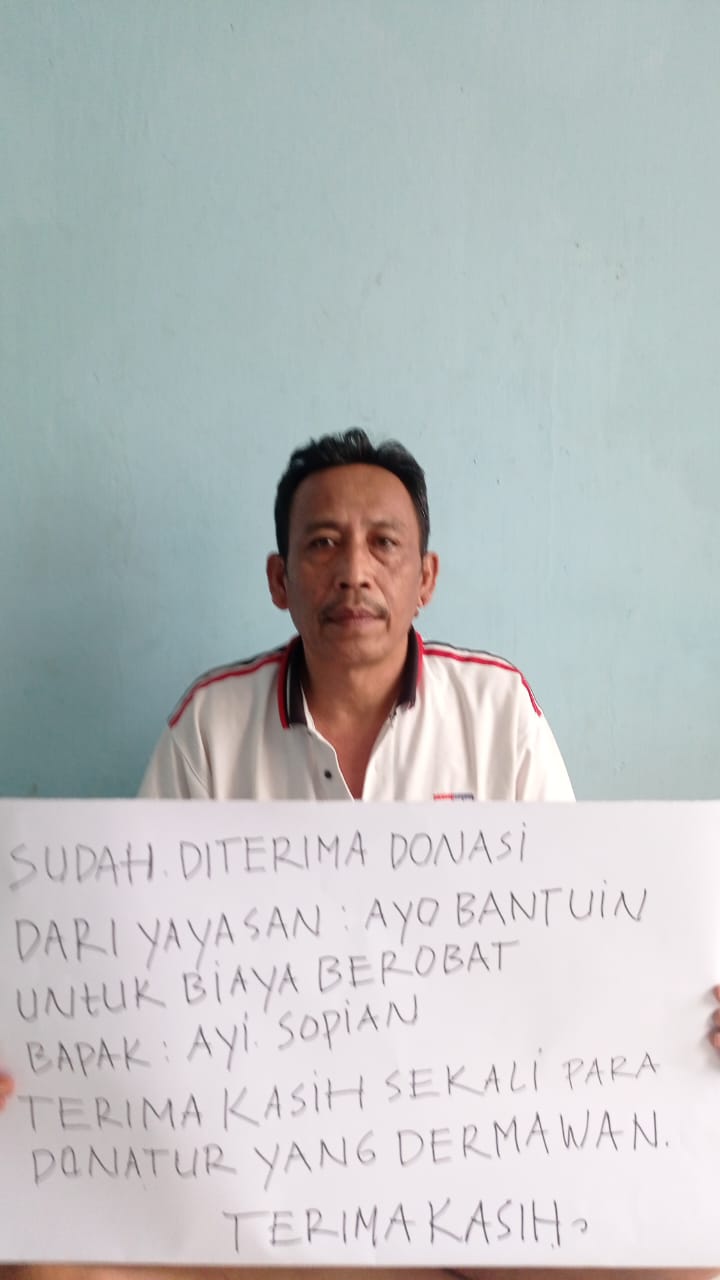 SUDAH. DITERIMA DONASi
DARI YAYASAN : AYO BANTUiN
UNtUK BiAYA BEROBAT
BAPAK : AYi. SOPiAN
TERIMA KASiH SEKALi PARA
DONATUR YANG DERMAWAN.
TERIMAKASIH.